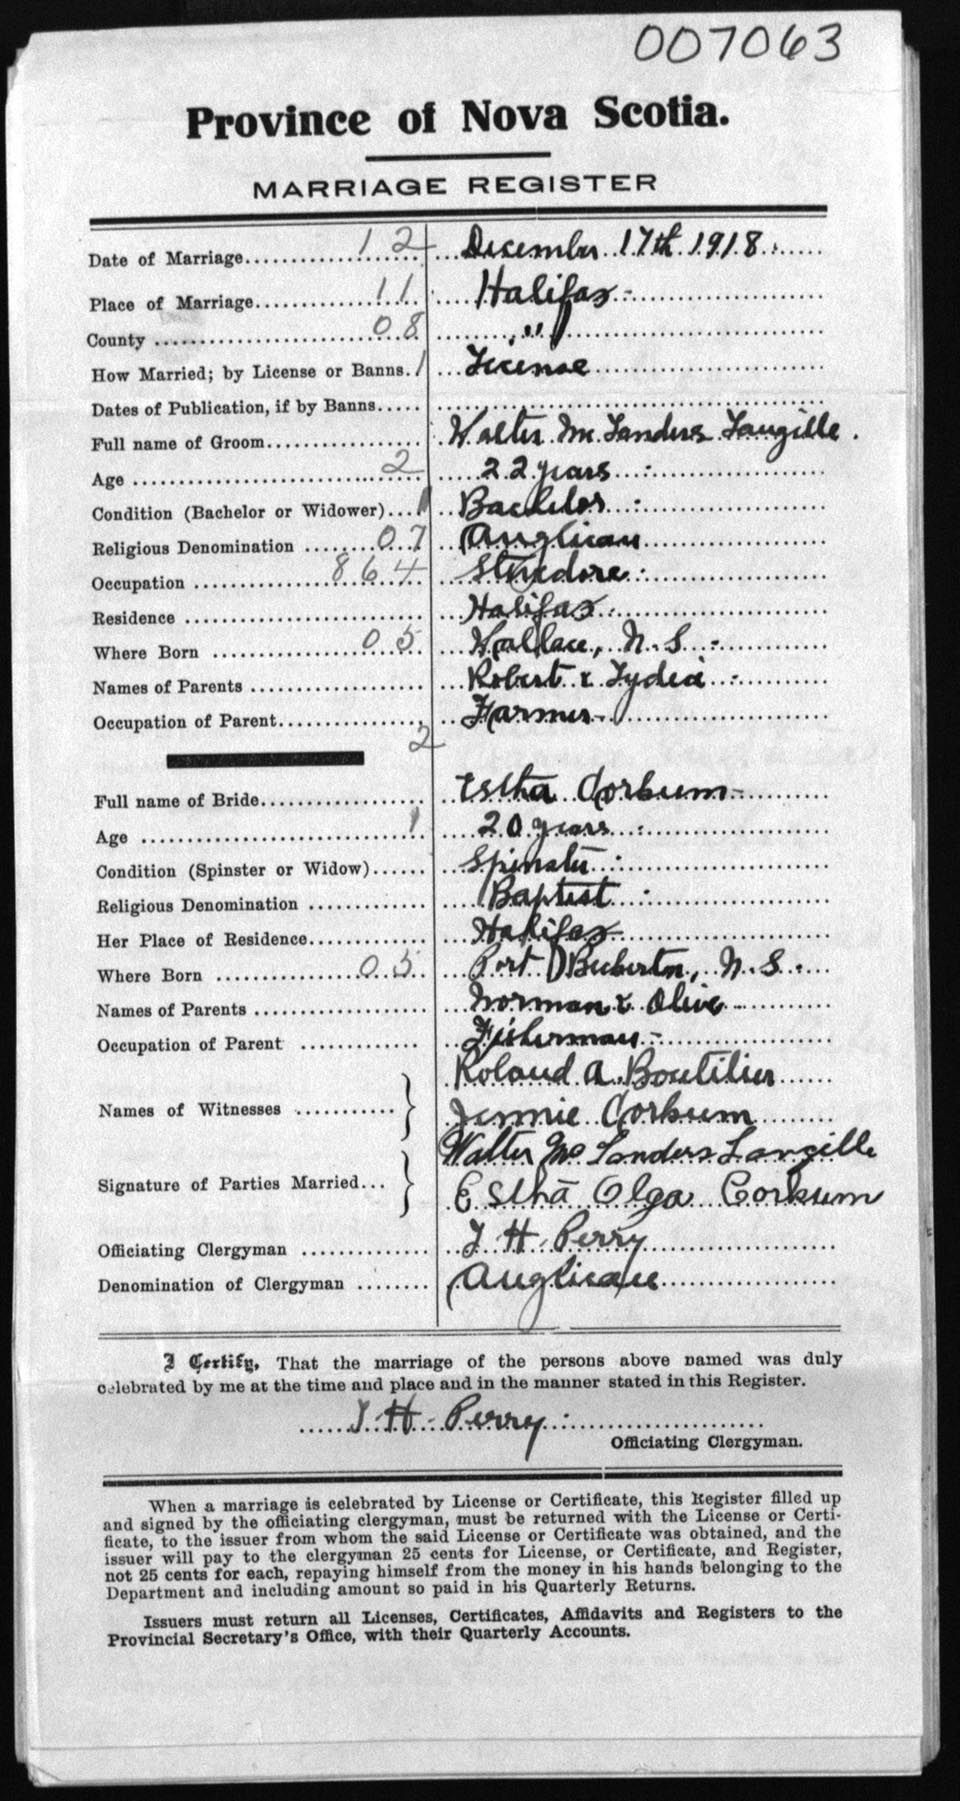 007063
Province of Nova Scotia.
MARRIAGE REGISTER
Date of Marriage 12 December 17th 1918
Place of Marriage 11 Halifax
County 08 "
How Married; by License or Banns. 1 License
Dates of Publication, if by Banns
Full name of Groom Walter Mc Landers Langille.
Age 2 22 years
Condition (Bachelor or Widower) 1 Bachelor
Religious Denomination 07 Anglican
Occupation 864 Stevedore
Residence Halifax
Where Born 05 Wallace, N.S.
Names of Parents Robert & Lydia
Occupation of Parent Farmer
2
Full name of Bride Estha Corkum
Age 1 20 years
Condition (Spinster or Widow) Spinster
Religious Denomination Baptist
Her Place of Residence Halifax
Where Born 05 Port N.S.
Names of Parents Norman & Olive
Occupation of Parent Fisherman
Roland A. Boutilier
Names of Witnesses
Jennie Corkum
Walter Mc Landers Langille
Signature of Parties Married
Estha Olga Corkum
Officiating Clergyman J H Perry
Denomination of Clergyman Anglican
I Certify, That the marriage of the persons above named was duly
celebrated by me at the time and place and in the manner stated in this Register.
J H Perry
Officiating Clergyman.
When a marriage is celebrated by License or Certificate, this Register filled up
and signed by the officiating clergyman, must be returned with the License or Certi-
ficate, to the issuer from whom the said License or Certificate was obtained, and the
issuer will pay to the clergyman 25 cents for License, or Certificate, and Register,
not 25 cents for each, repaying himself from the money in his hands belonging to the
Department and including amount so paid in his Quarterly Returns.
Issuers must return all Licenses, Certificates, Affidavits and Registers to the
Provincial Secretary's Office, with their Quarterly Accounts.